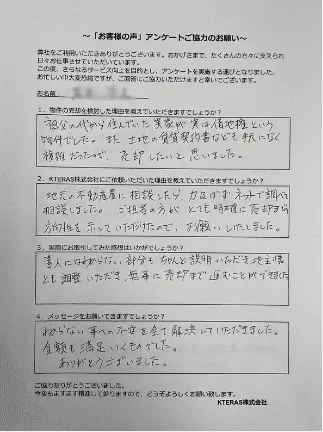 ～「お客様の声」アンケートご協力のお願い～
弊社をご利用いただきありがとうございます。おかげさまで、たくさんの方々に支えられ
日々お仕事させていただいています。
この度、さらなるサービス向上を目的とし、アンケートを実施する運びとなりました。
お忙しい中大変恐縮ですが、ご回答にご協力いただけますと幸いでございます。
お名前：
1．物件の売却を検討した理由を教えていただきますでしょうか？
祖父の代から住んでいた実家が実は借地権という
物件でした。また土地の賃貸契約書なども無になく
複雑だったので、売却したいと思いました。
2．KTERAS株式会社にご依頼いただいた理由を教えていただきますでしょうか？
地元の不動産屋に相談したら、力及ばずネットで調べ
相談しました。ご担当の方がとても明確に売却まで
方向性を示していただけたので、お願いいたしました。
3．実際にお取引してみた感想はいかがでしょうか？
素人にはわからない部分もちゃんと説明いただき地主様
とも調整いただき、無事に売却まで進むことができました
4．メッセージをお願いできますでしょうか？
わからない事への不安を全て解決していただきました。
金額も満足いくものでした。
ありがとうございました。
ご協力ありがとうございました。
今後もますます精進して参りますので、どうぞよろしくお願い致します。
KTERAS株式会社